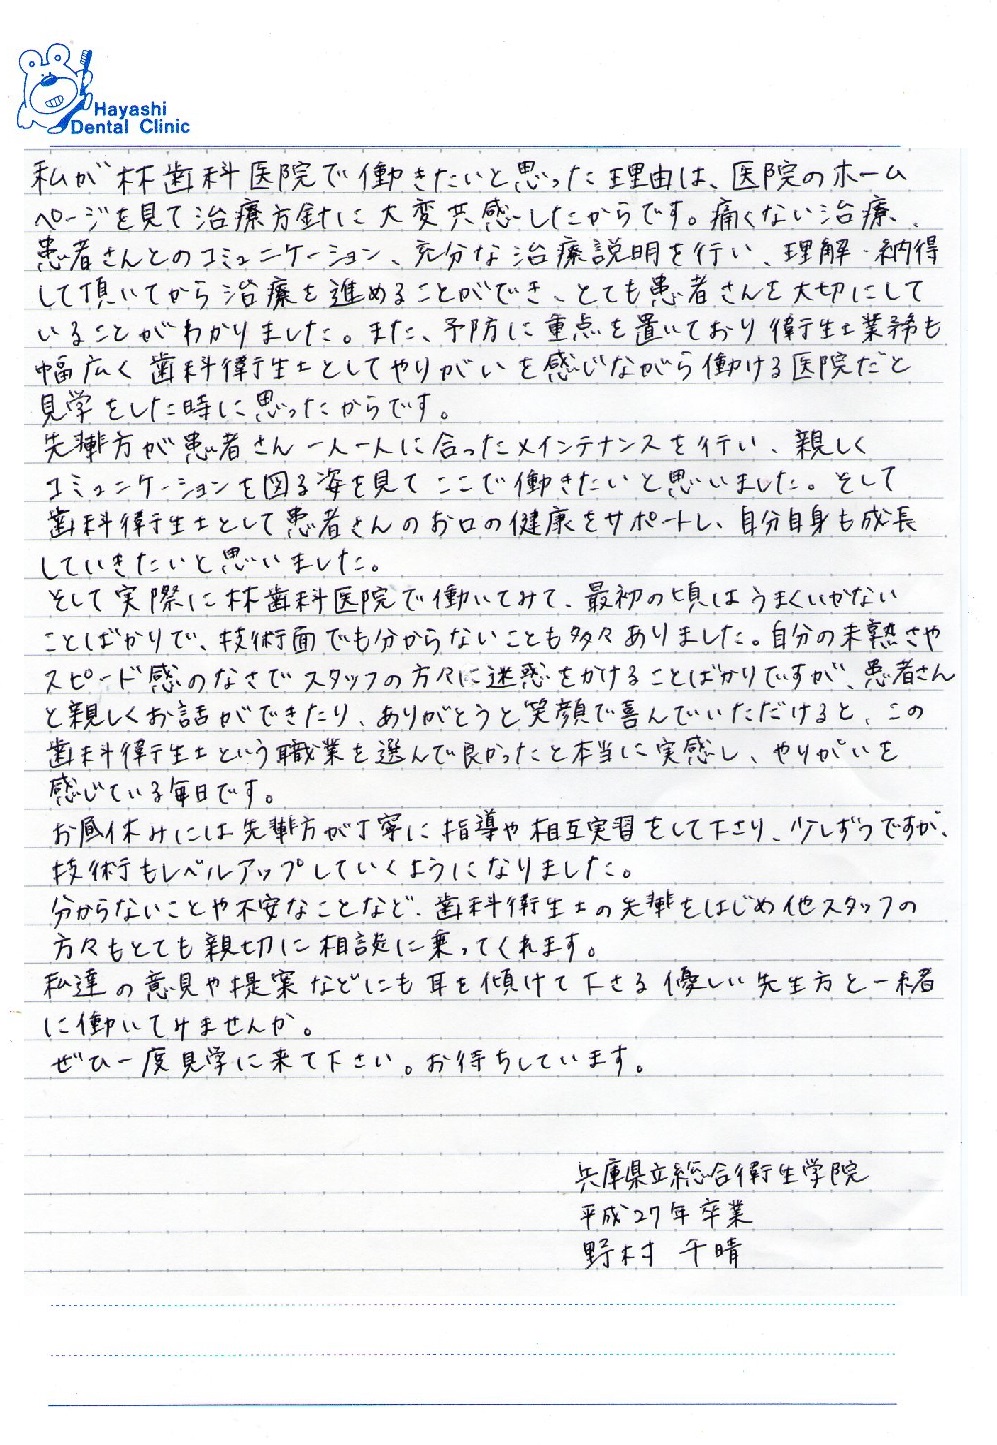 Hayashi
Dental Clinic
私が林歯科医院で働きたいと思った理由は、医院のホーム
ページを見て治療方針に大変共感したからです。痛くない治療、
患者さんとのコミュニケーション、充分な治療説明を行い、理解・納得
して頂いてから治療を進めることができ、とても患者さんを大切にして
いることがわかりました。また、予防に重点を置いており衛生士業務も
幅広く歯科衛生士としてやりがいを感じながら働ける医院だと
見学をした時に思ったからです。
先輩方が患者さん一人一人に合ったメインテナンスを行い、親しく
コミュニケーションを図る姿を見てここで働きたいと思いました。そして
歯科衛生士として患者さんのお口の健康をサポートし、自分自身も成長
していきたいと思いました。
そして実際に林歯科医院で働いてみて、最初の頃はうまくいかない
ことばかりで、技術面でも分からないことも多々ありました。自分の未熟さや
スピード感のなさでスタッフの方々に迷惑をかけることばかりですが、患者さん
と親しくお話ができたり、ありがとうと笑顔で喜んでいただけると、この
歯科衛生士という職業を選んで良かったと本当に実感し、やりがいを
感じている毎日です。
お昼休みには先輩方が丁寧に指導や相互実習をして下さり、少しずつですが、
技術もレベルアップしていくようになりました。
分からないことや不安なことなど、歯科衛生士の先輩をはじめ他スタッフの
方々もとても親切に相談に乗ってくれます。
私達の意見や提案などにも耳を傾けて下さる優しい先生方と一緒
に働いてみませんか。
ぜひ一度見学に来て下さい。お待ちしています。
兵庫県立総合衛生学院
平成27年卒業
野村 千晴